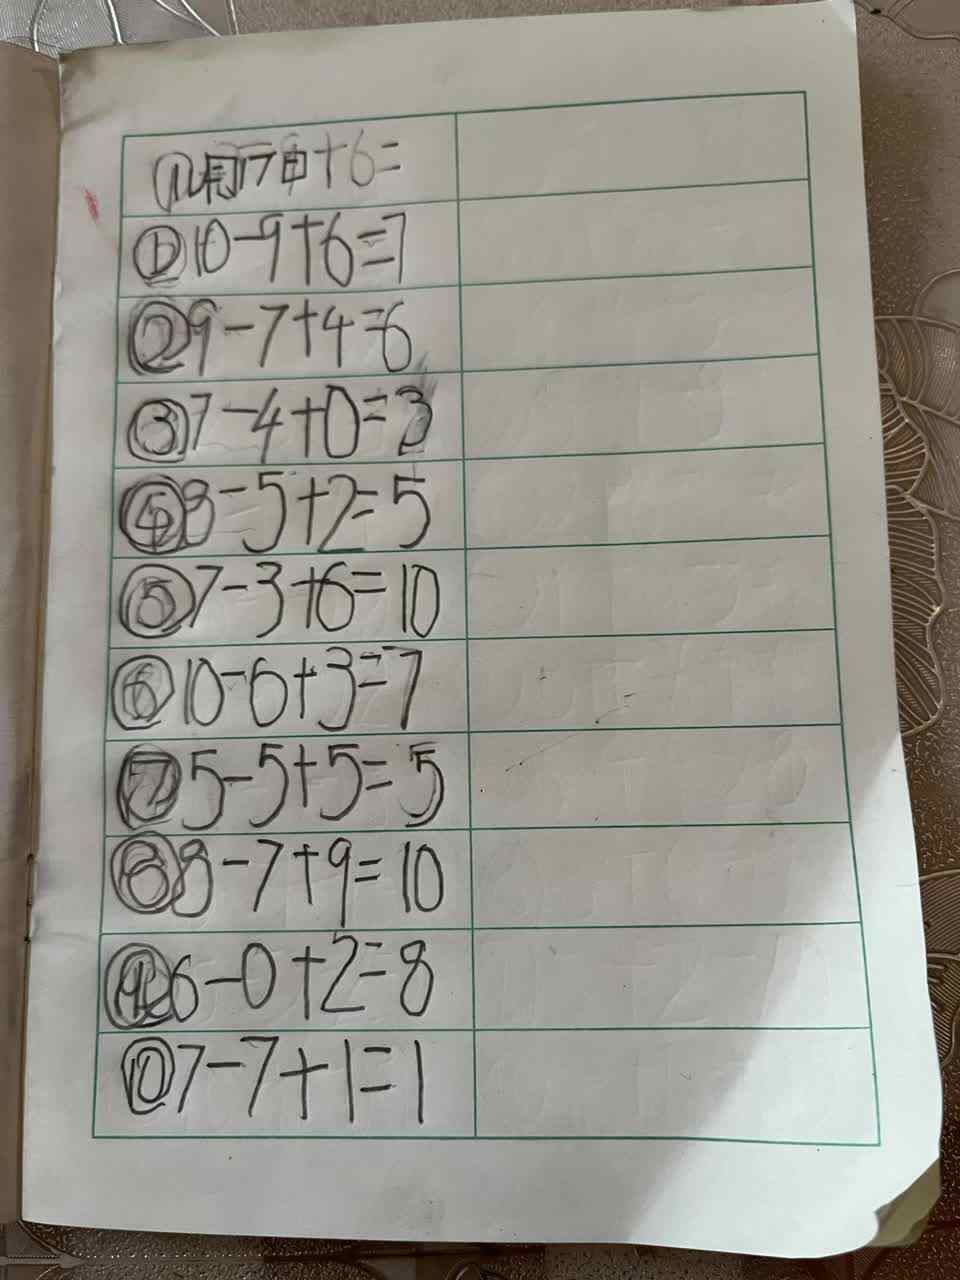 11月17日+6=
①10-9+6=7
②9-7+4=6
③7-4+0=3
④8-5+2=5
⑤7-3+6=10
⑥10-6+3=7
⑦5-5+5=5
⑧8-7+9=10
⑨6-0+2=8
⑩7-7+1=1